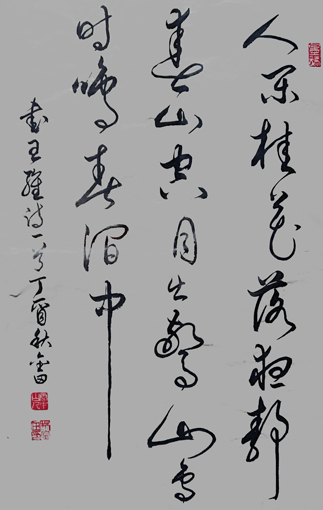 人闲桂花落夜静
春山空月出惊山鸟
时鸣春涧中
书王维诗一首丁酉秋金田